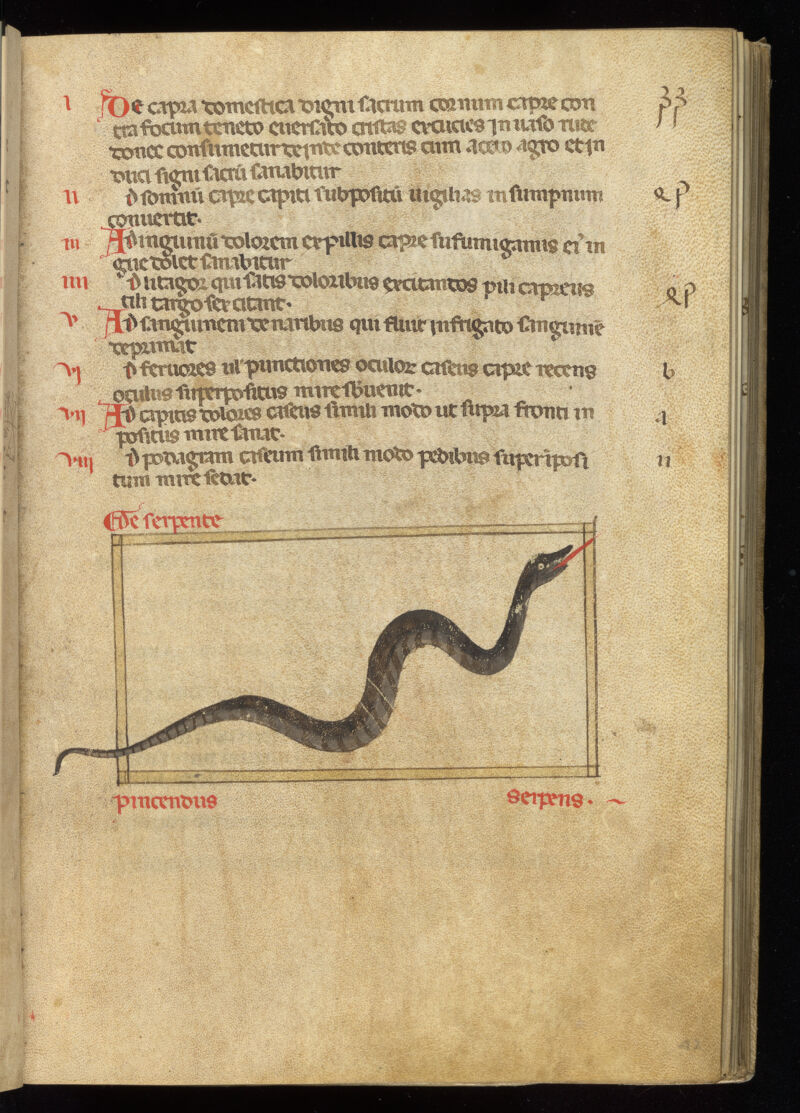 I De capra domestica digni sacrum cornum capre con
tra focum teneto euersato cristas excucies in uaso rude
donec consumetur deinde conteris cum aceto agro et in
duci sacrū sanabitur
II d somnū capre capiti subpositū uigilias in sumpnum
conuertit.
III Ad inguinū dolorem ex pillis capre sufumigamus ei in
gue dolet sanabitur
IIII qui satis doloribus excitantos pili capreus
excitant.
V Ad sanguinem de naribus qui fluit infrigato sanguinē
deprimat
VI d feruores ul punctiones oculor caseus capre recens
oculus superpositus mire
VII Ad capitis dolores caseus simili modo ut supra fronti in
positus mire sanat.
VIII d podagram caseum simili modo pedibus superīposi
tum mire sedat.
De serpente
pincendus serpens.